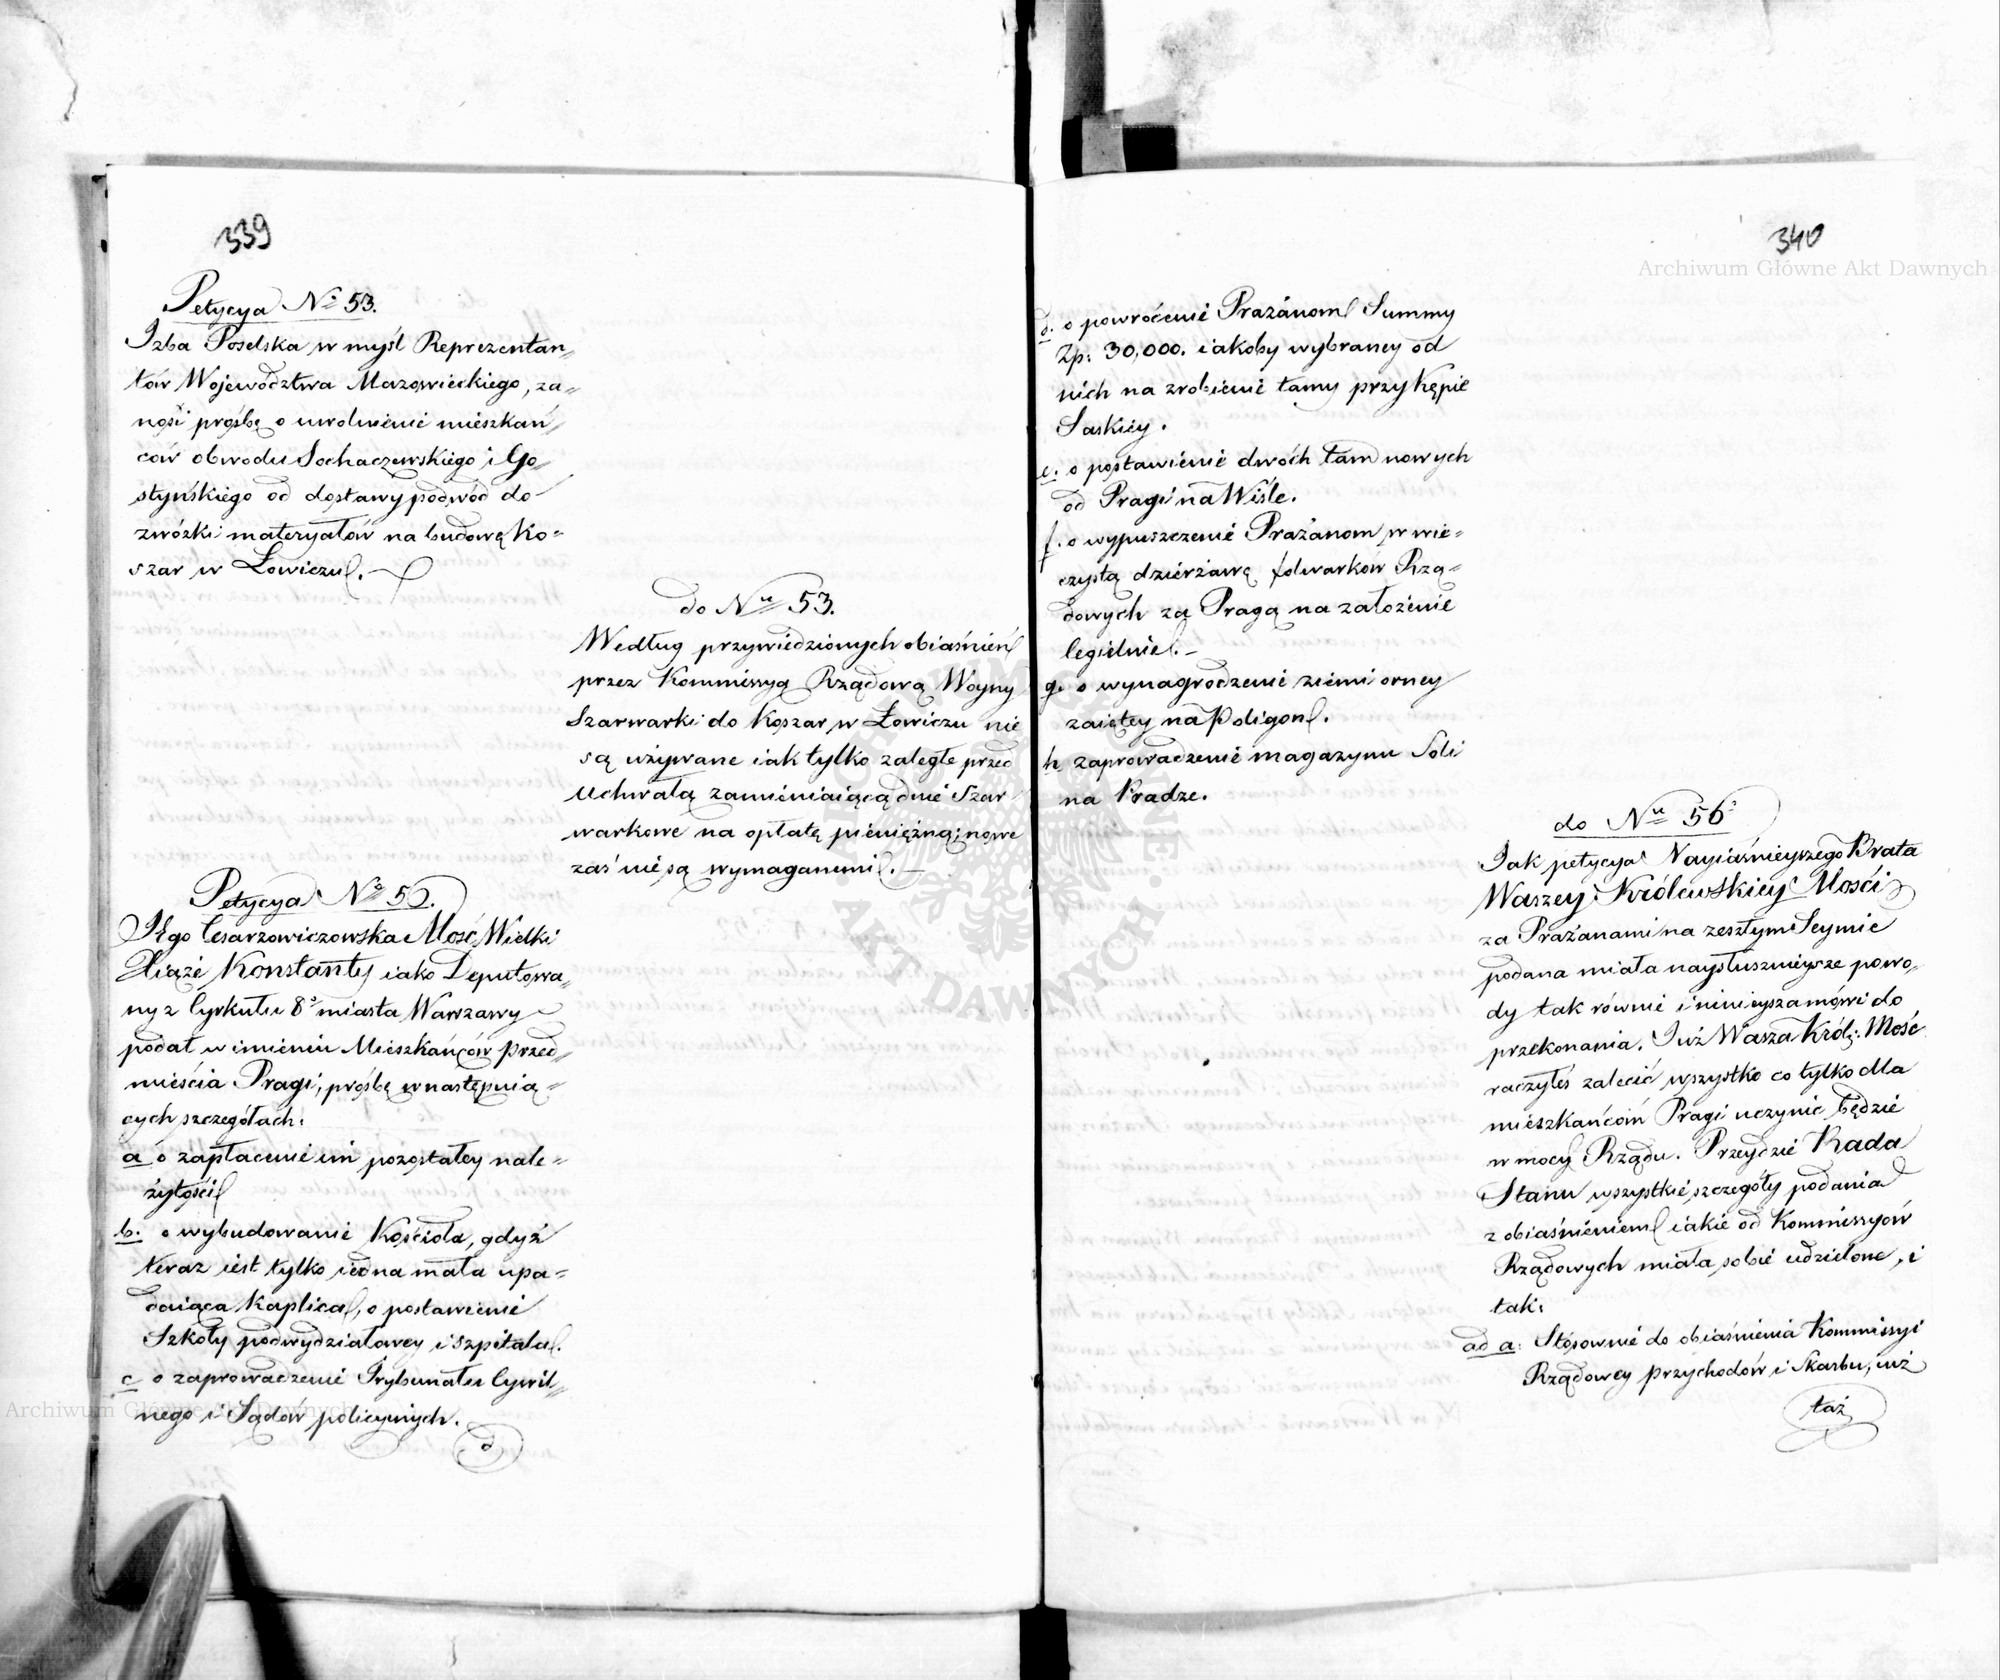 339
Petycya N: 53.
Izba Poselska w myśl Reprezentan=
tów Województwa Mazowieckiego, za=
nosi prośbę o uwolnienie mieszkań=
ców obwodu Sochaczewskiego i Go=
styńskiego od dostawy podwód do
zwózki materyałów na budowę Ko=
szar w Łowiczu.
do Nu 53.
Według przywiedzionych obiaśnień
przez Kommissyą Rządową Woyny
Szarwarki do Koszar w Łowiczu nie
są używane iak tylko zaległe przed
Uchwałą zamieniaiącą dnie Szar=
warkowe na opłatę pieniężną; nowe
zaś nie są wymaganemi.
Petycya No
Jego Cesarzowiczowska Mość Wielki
Xiąże Konstanty iako Deputowa=
ny z Cyrkułu 8o miasta Warszawy
podał w imieniu Mieszkańców przed=
mieścia Pragi, prośbę w następuią=
cych szczegółach:
a o zapłacenie im pozostałey nale=
żytości
b. o wybudowanie Kościoła, gdyż
teraz iest tylko iedna mała upa=
daiąca Kaplica, o postawienie
Szkoły podwydziałowey i szpitala.
c o zaprowadzenie Trybunału Cywil=
nego i Sądów policyinych.
d
340
d. o powrócenie Prażanom Summy
Zp: 30,000. iakoby wybraney od
nich na zrobienie tamy przy Kępie
Saskiey.
e. o postawienie dwóch tam nowych
od Pragi na Wiśle.
f. o wypuszczenie Prażanom w wie=
czystą dzierżawę folwarków Rzą=
dowych za Pragą na założenie
legielnie.
g. o wynagrodzenie ziemi orney
zaiętey na Poligon.
h zaprowadzenie magazynu Soli
na Pradze.
do Nu 56:
Jak petycya Nayiaśnieyszego Brata
Waszey Królewskiey Mości
za Prażanami na zeszłym Seymie
podana miała naysłusznieysze powo=
dy tak równie i ninieysza mówi do
przekonania. Już Wasza Król: Mość
raczyłeś zalecić wszystko co tylko dla
mieszkańców Pragi uczynić będzie
w mocy Rządu. Przeydzie Rada
Stanu wszystkie szczegóły podania
z obiaśnieniem iakie od Kommissyów
Rządowych miała sobie udzielone, i
tak:
ad a: Stósownie do obiaśnienia Kommissyi
Rządowey przychodów i Skarbu, iuż
taż
Archiwum Główne Akt Dawnych
Archiwum Główne Akt Dawnych
ARCHIWUM GŁÓWNE AKT DAWNYCH